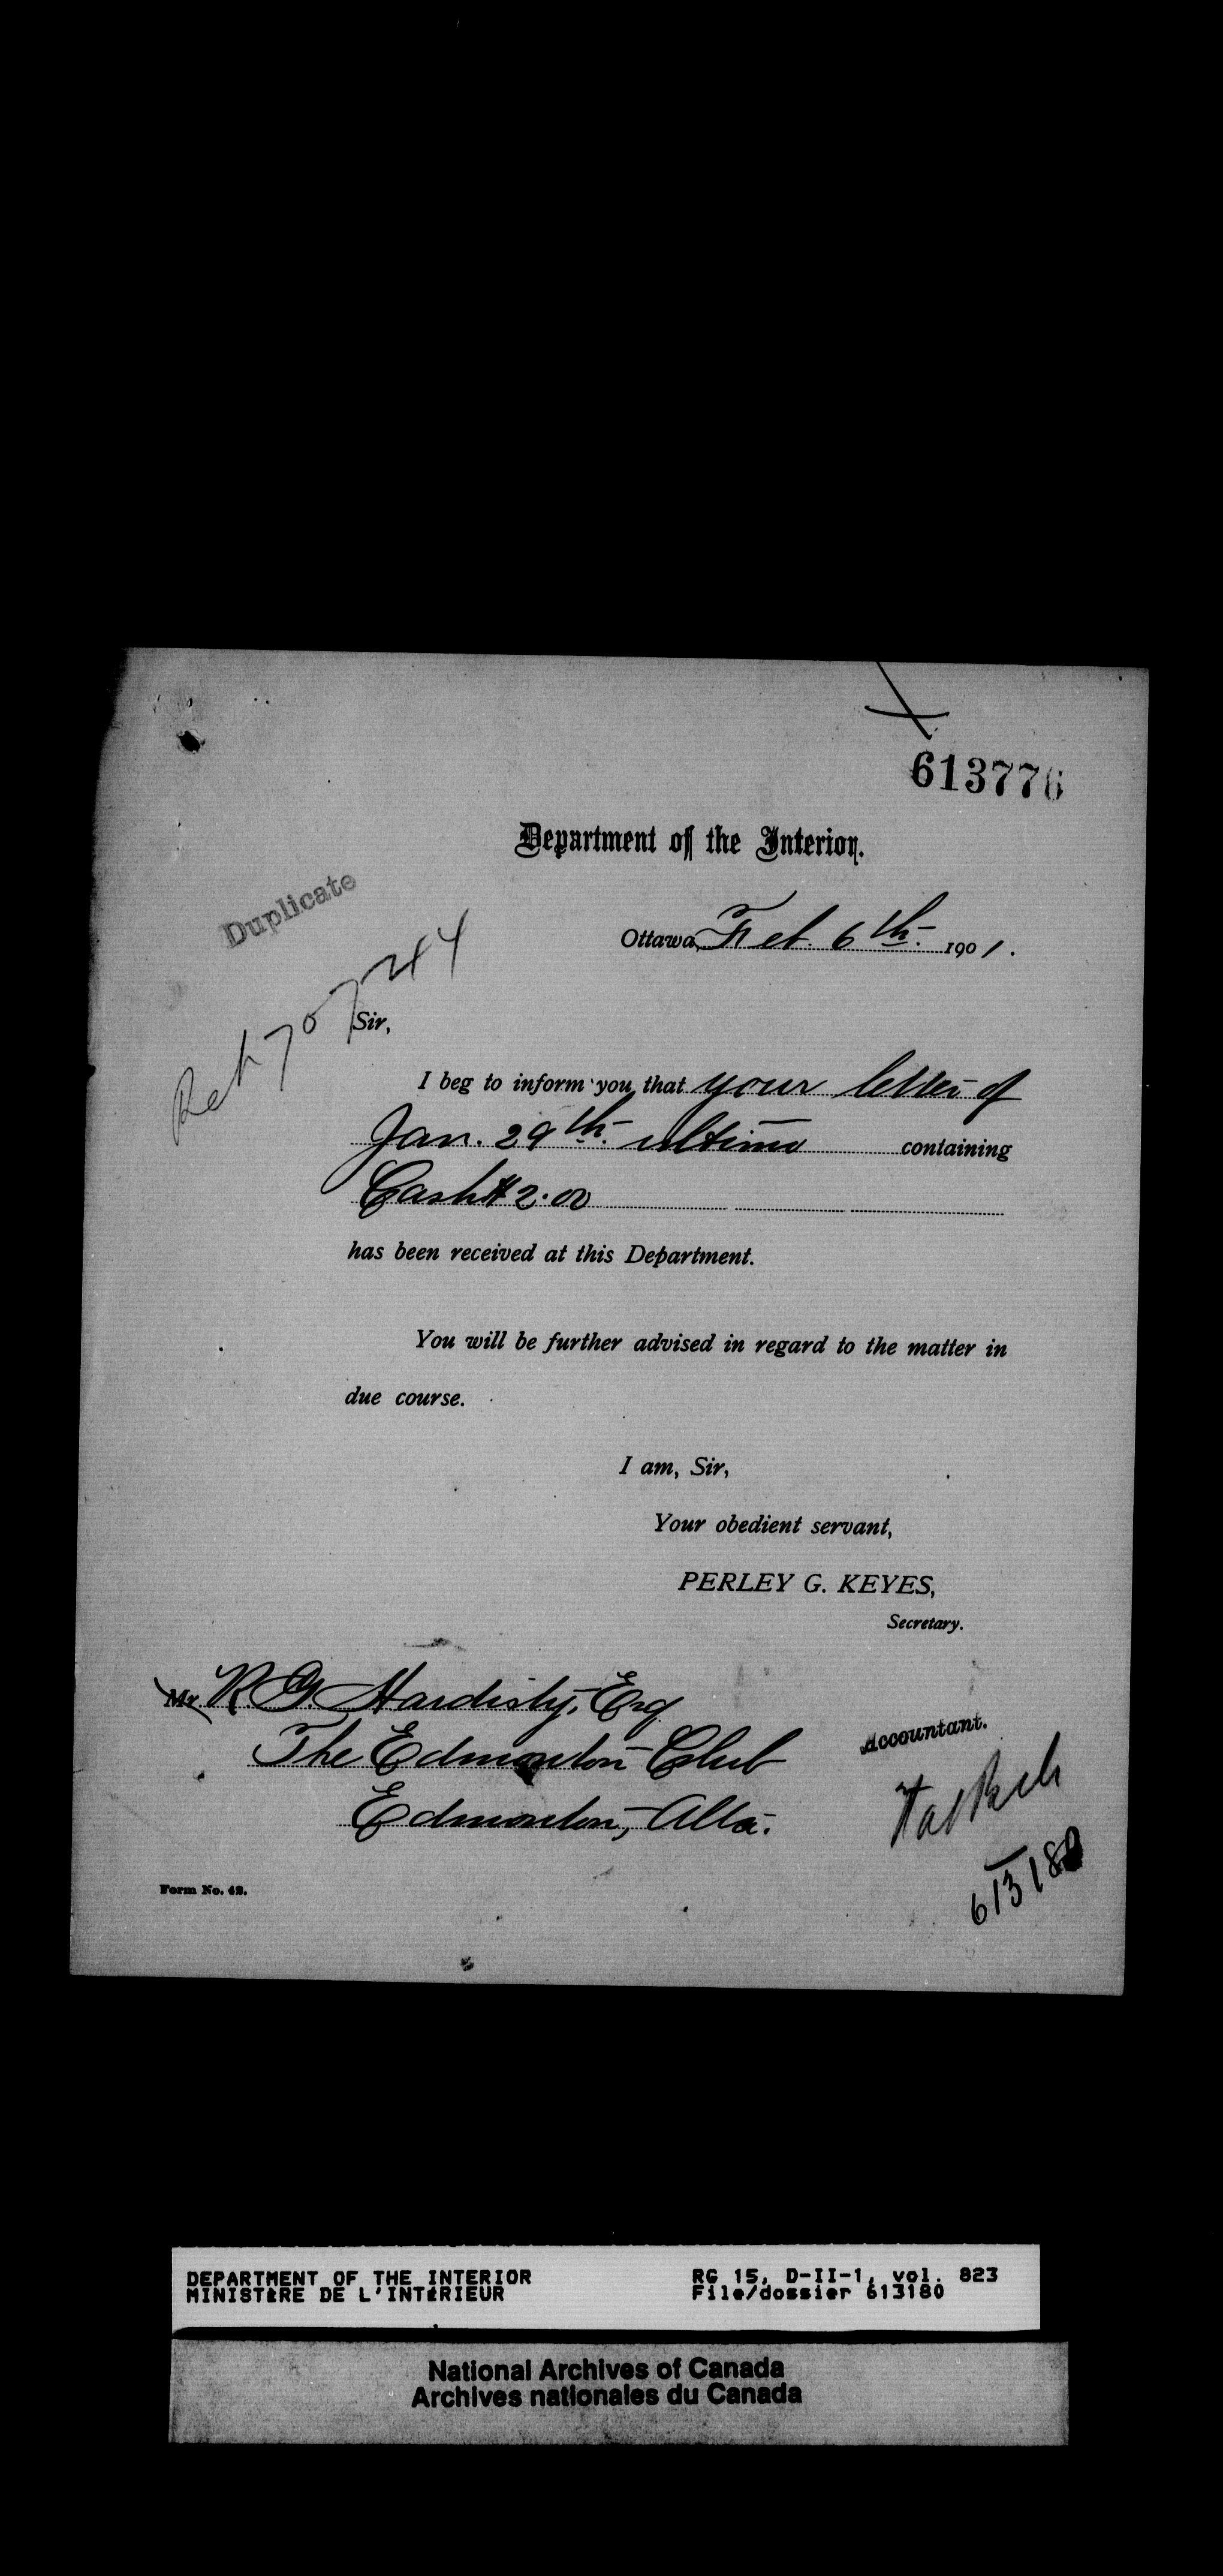 613776
Department of the Interior.
Duplicate
Ottawa, Feb. 6th. 1901.
Ret 707244
Sir,
I beg to inform you that your letter of
Jan. 29th. ultimo containing
Cash $2.00
has been received at this Department.
You will be further advised in regard to the matter in
due course.
I am, Sir,
Your obedient servant,
PERLEY G. KEYES,
Secretary.
Mr. R. G. Hardisty, Esq
The Edmonton Club
Edmonton, Alta.
Accountant.
613180
Form No. 42.
DEPARTMENT OF THE INTERIOR
MINISTÈRE DE L'INTÉRIEUR
RG 15, D-II-1, vol. 823
File/dossier 613180
National Archives of Canada
Archives nationales du Canada